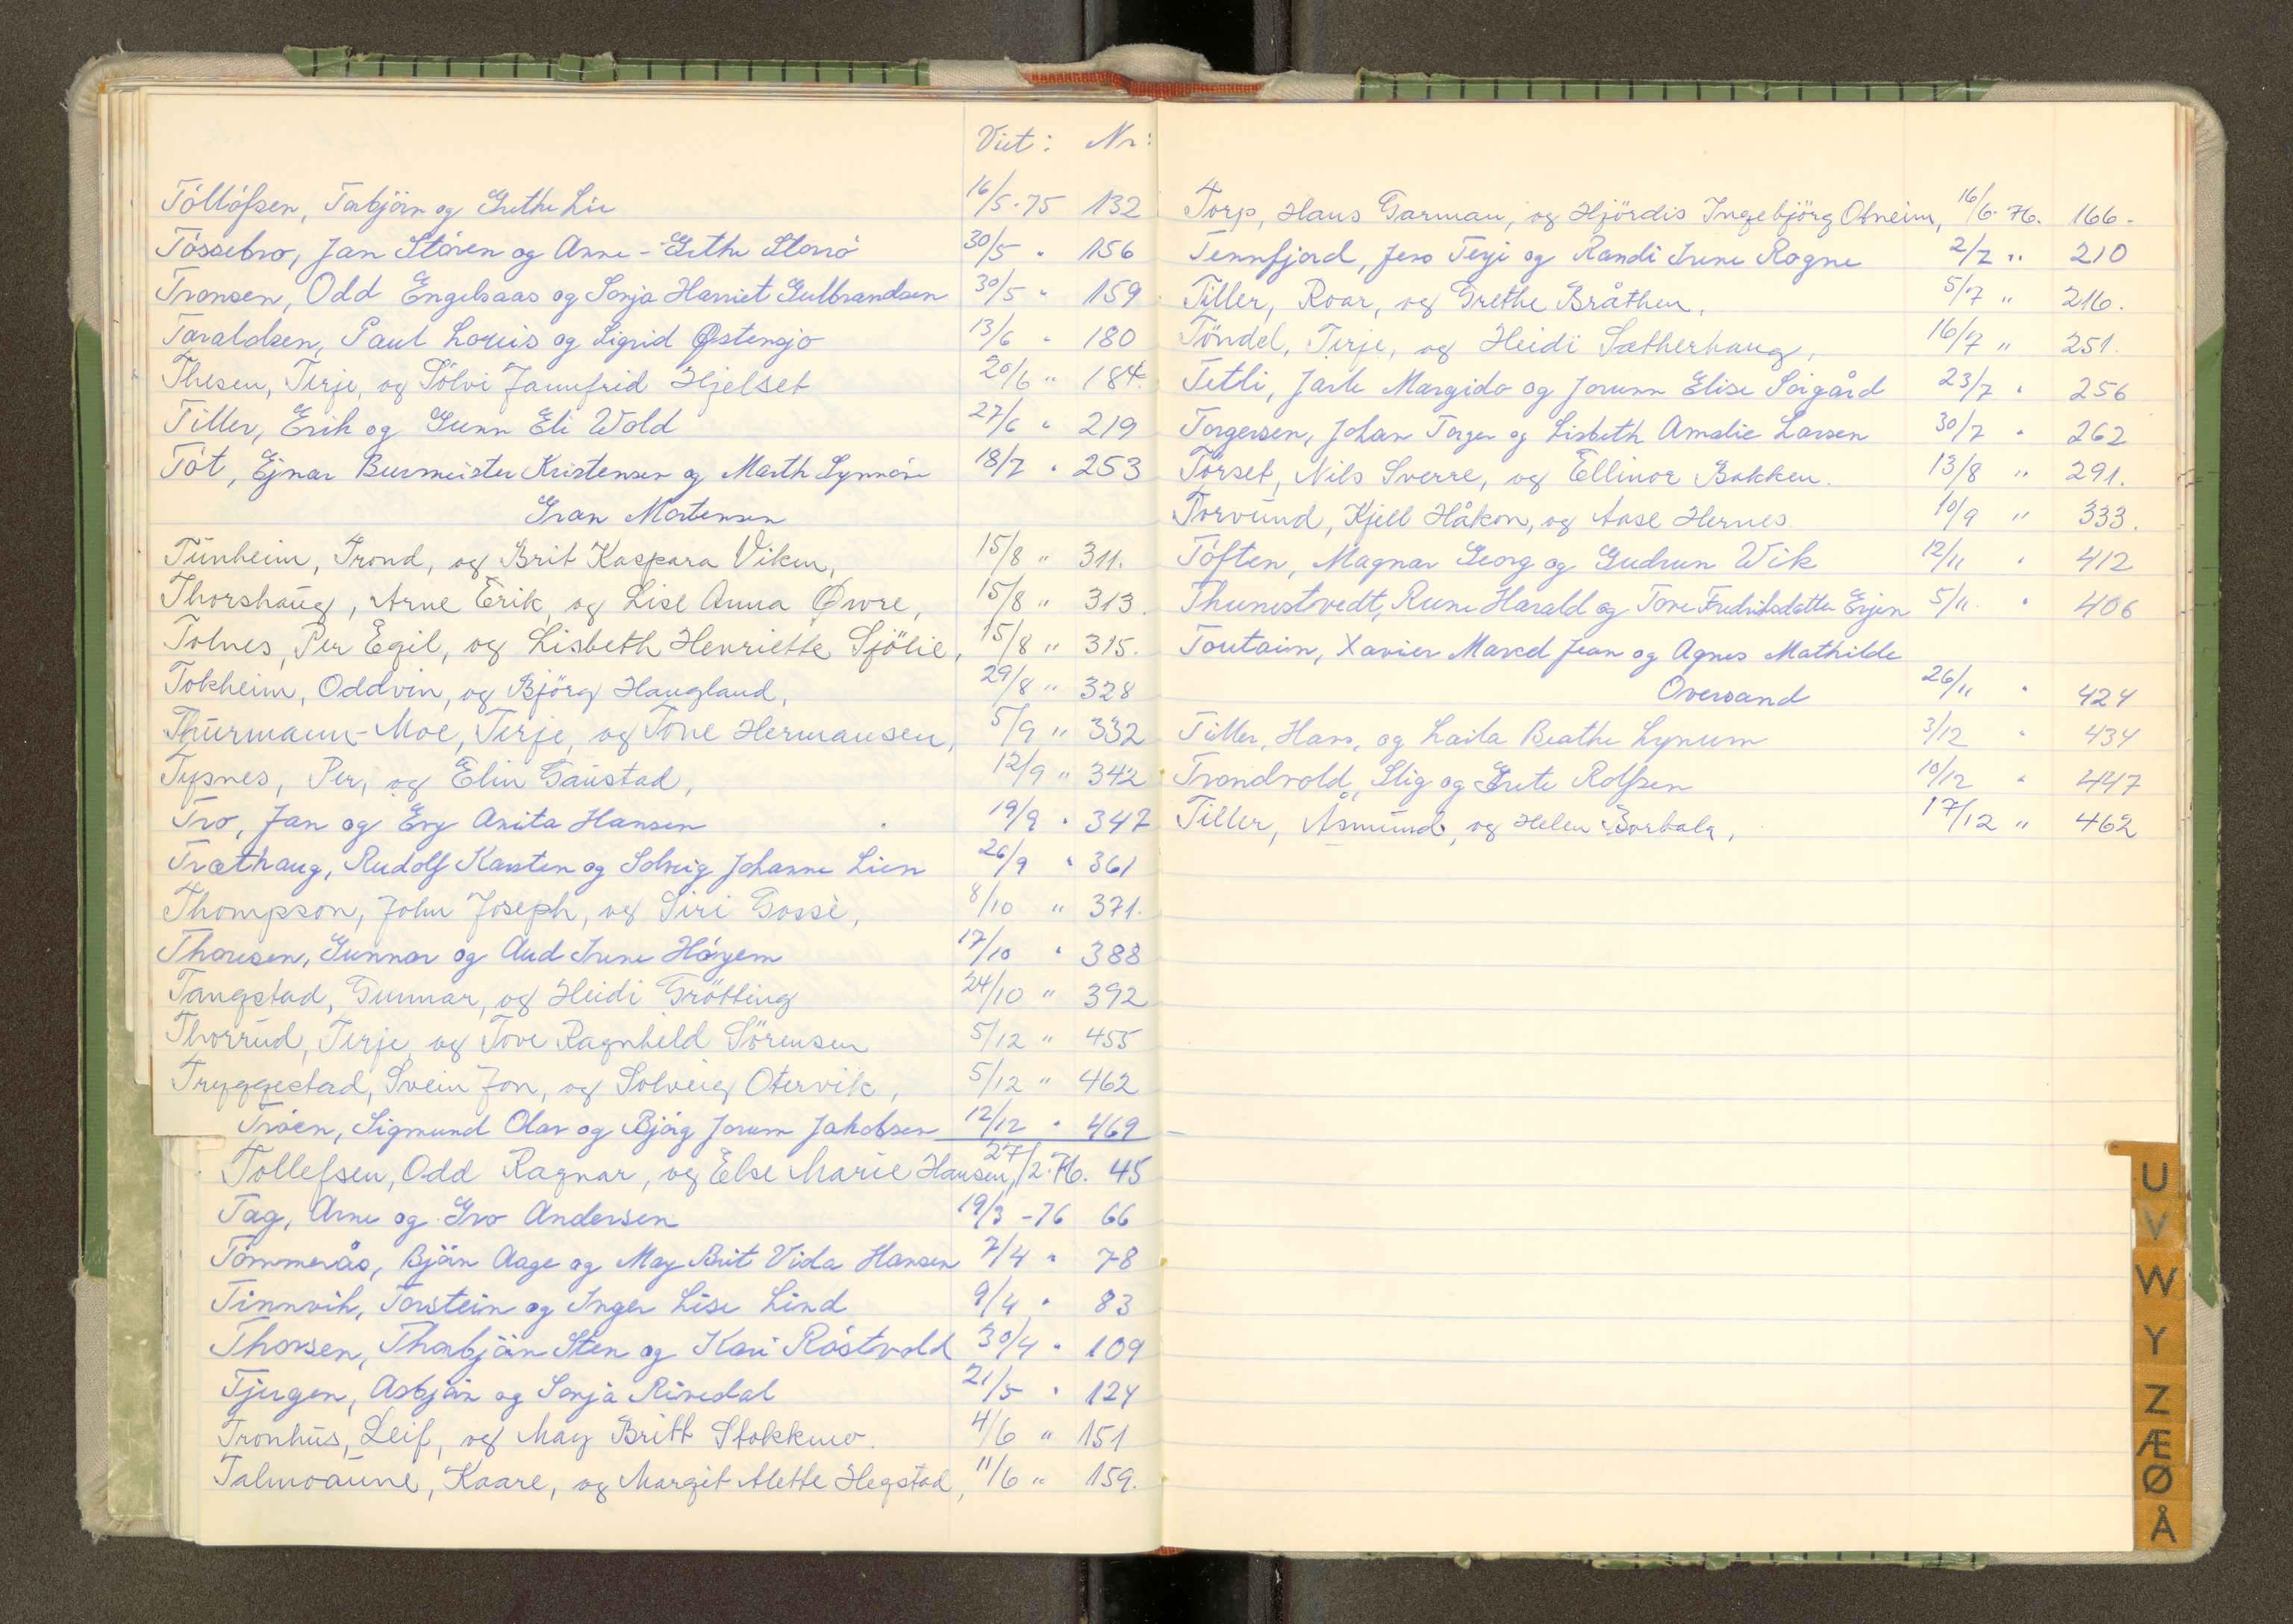 Viet: Nr:
Tóllófsen, Torbjörn og Grethe Lie 16/5-75 132
Tóssebro, Jan Stóren og Anne-Grethe Storró 30/5 " 156
Tronsen, Odd Engelsaas og Sonja Harriet Gulbrandsen 30/5 " 159
Taraldsen, Paul Louis og Sigrid Østensjo 13/6 " 180
Thesen, Terje, og Sölvi Jannfrid Hjelset 20/6 " 184.
Tiller, Erik og Gunn Eli Wold 27/6 " 219
Tót, Ejnar Burmeister Kristensen og Marth Synnöve 18/7 " 253
Gran Mortensen
Tunheim, Trond, og Brit Kaspara Viken, 15/8 " 311.
Thorshaug, Arne Erik, og Lise Anna Øvre, 15/8 " 313.
Tolnes, Per Egil, og Lisbeth Henriette Sjölie, 15/8 " 315.
Tokheim, Oddvin, og Björg Haugland, 29/8 " 328
Thurmann-Moe, Terje, og Tone Hermansen, 5/9 " 332
Tysnes, Per, og Elin Gaustad, 12/9 " 342
Tro, Jan og Evy Anita Hansen 19/9 " 347
Træthaug, Rudolf Karsten og Solveig Johanne Lien 26/9 " 361
Thompson, John Joseph, og Siri Gossè, 8/10 " 371.
Thoresen, Gunnar og Aud Irene Höyem 17/10 " 388
Tangstad, Gunnar, og Heidi Grötting 24/10 " 392
Thorrud, Terje, og Tove Ragnhild Sörensen 5/12 " 455
Tryggestad, Svein Jon, og Solveig Otervik, 5/12 " 462
Tróen, Sigmund Olav og Bjórg Jorunn Jakobsen 12/12 " 469
Tollefsen, Odd Ragnar, og Else Marie Hansen, 27/2-76. 45
Tag, Arne og Gro Andersen 19/3-76 66
Tömmerås, Björn Aage og May Brit Vida Hansen 7/4 " 78
Tinnvik, Torstein og Inger Lise Lind 9/4 " 83
Thorsen, Thorbjörn Sten og Kari Róstvold 30/4 " 109
Tjergen, Asbjörn og Sonja Rivedal 21/5 " 124
Tronhus, Leif, og May Britt Stokkmo. 4/6 " 151
Talmoaune, Kaare, og Margit Alette Hegstad, 11/6 " 159.
Torp, Hans Garman, og Hjördis Ingebjörg Obneim, 16/6-76. 166-
Tennfjord, Jens Terje og Randi Irene Rogne 2/7 " 210
Tiller, Roar, og Grethe Bråthen, 5/7 " 216.
Töndel, Terje, og Heidi Sætherhaug, 16/7 " 251.
Tetli, Jarle Margido og Jorunn Elise Sörgård 23/7 " 256
Torgersen, Johan Torger og Lisbeth Amalie Larsen 30/7 " 262
Törset, Nils Sverre, og Ellinor Bakken. 13/8 " 291.
Torvund, Kjell Håkon, og Aase Hernes 10/9 " 333.
Tóften, Magnar Georg og Gudrun Wik 12/11 " 412
Thunestvedt, Rune Harald og Tone Fredriksdatter Evjen 5/11. " 406
Toutain, Xavier Marcel Jean og Agnes Mathilde
Oversand 26/11 " 424
Tiller, Hans, og Laila Beathe Lynum 3/12 " 434
Trondvold, Stig og Grete Rolfsen 10/12 " 447
Tiller, Åsmund, og Helen Borbala, 17/12 " 462
U
V
W
Y
Z
Æ
Ø
Å